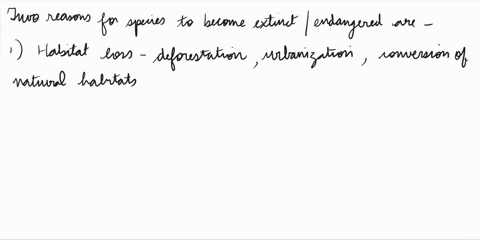 Two reasons for species to become extinct / endangered are -
1) Habitat loss - deforestation, urbanization, conversion of
natural habitats